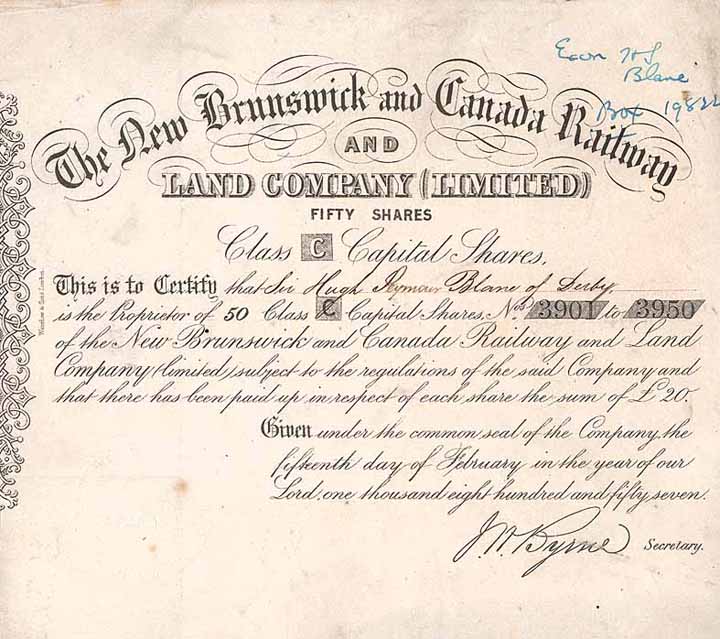 Exors H S
Blane
Box 1982
The New Brunswick and Canada Railway
AND
LAND COMPANY (LIMITED)
FIFTY SHARES
Class C Capital Shares.
This is to Certify that Sir Hugh Seymour Blane of Derby
is the Proprietor of 50 Class C Capital Shares Nos. 3901 to 3950
of the New Brunswick and Canada Railway and Land
Company (limited) subject to the regulations of the said Company and
that there has been paid up in respect of each share the sum of £20.
Given under the common seal of the Company, the
fifteenth day of February in the year of our
Lord, one thousand eight hundred and fifty seven.
J W Byrne Secretary.